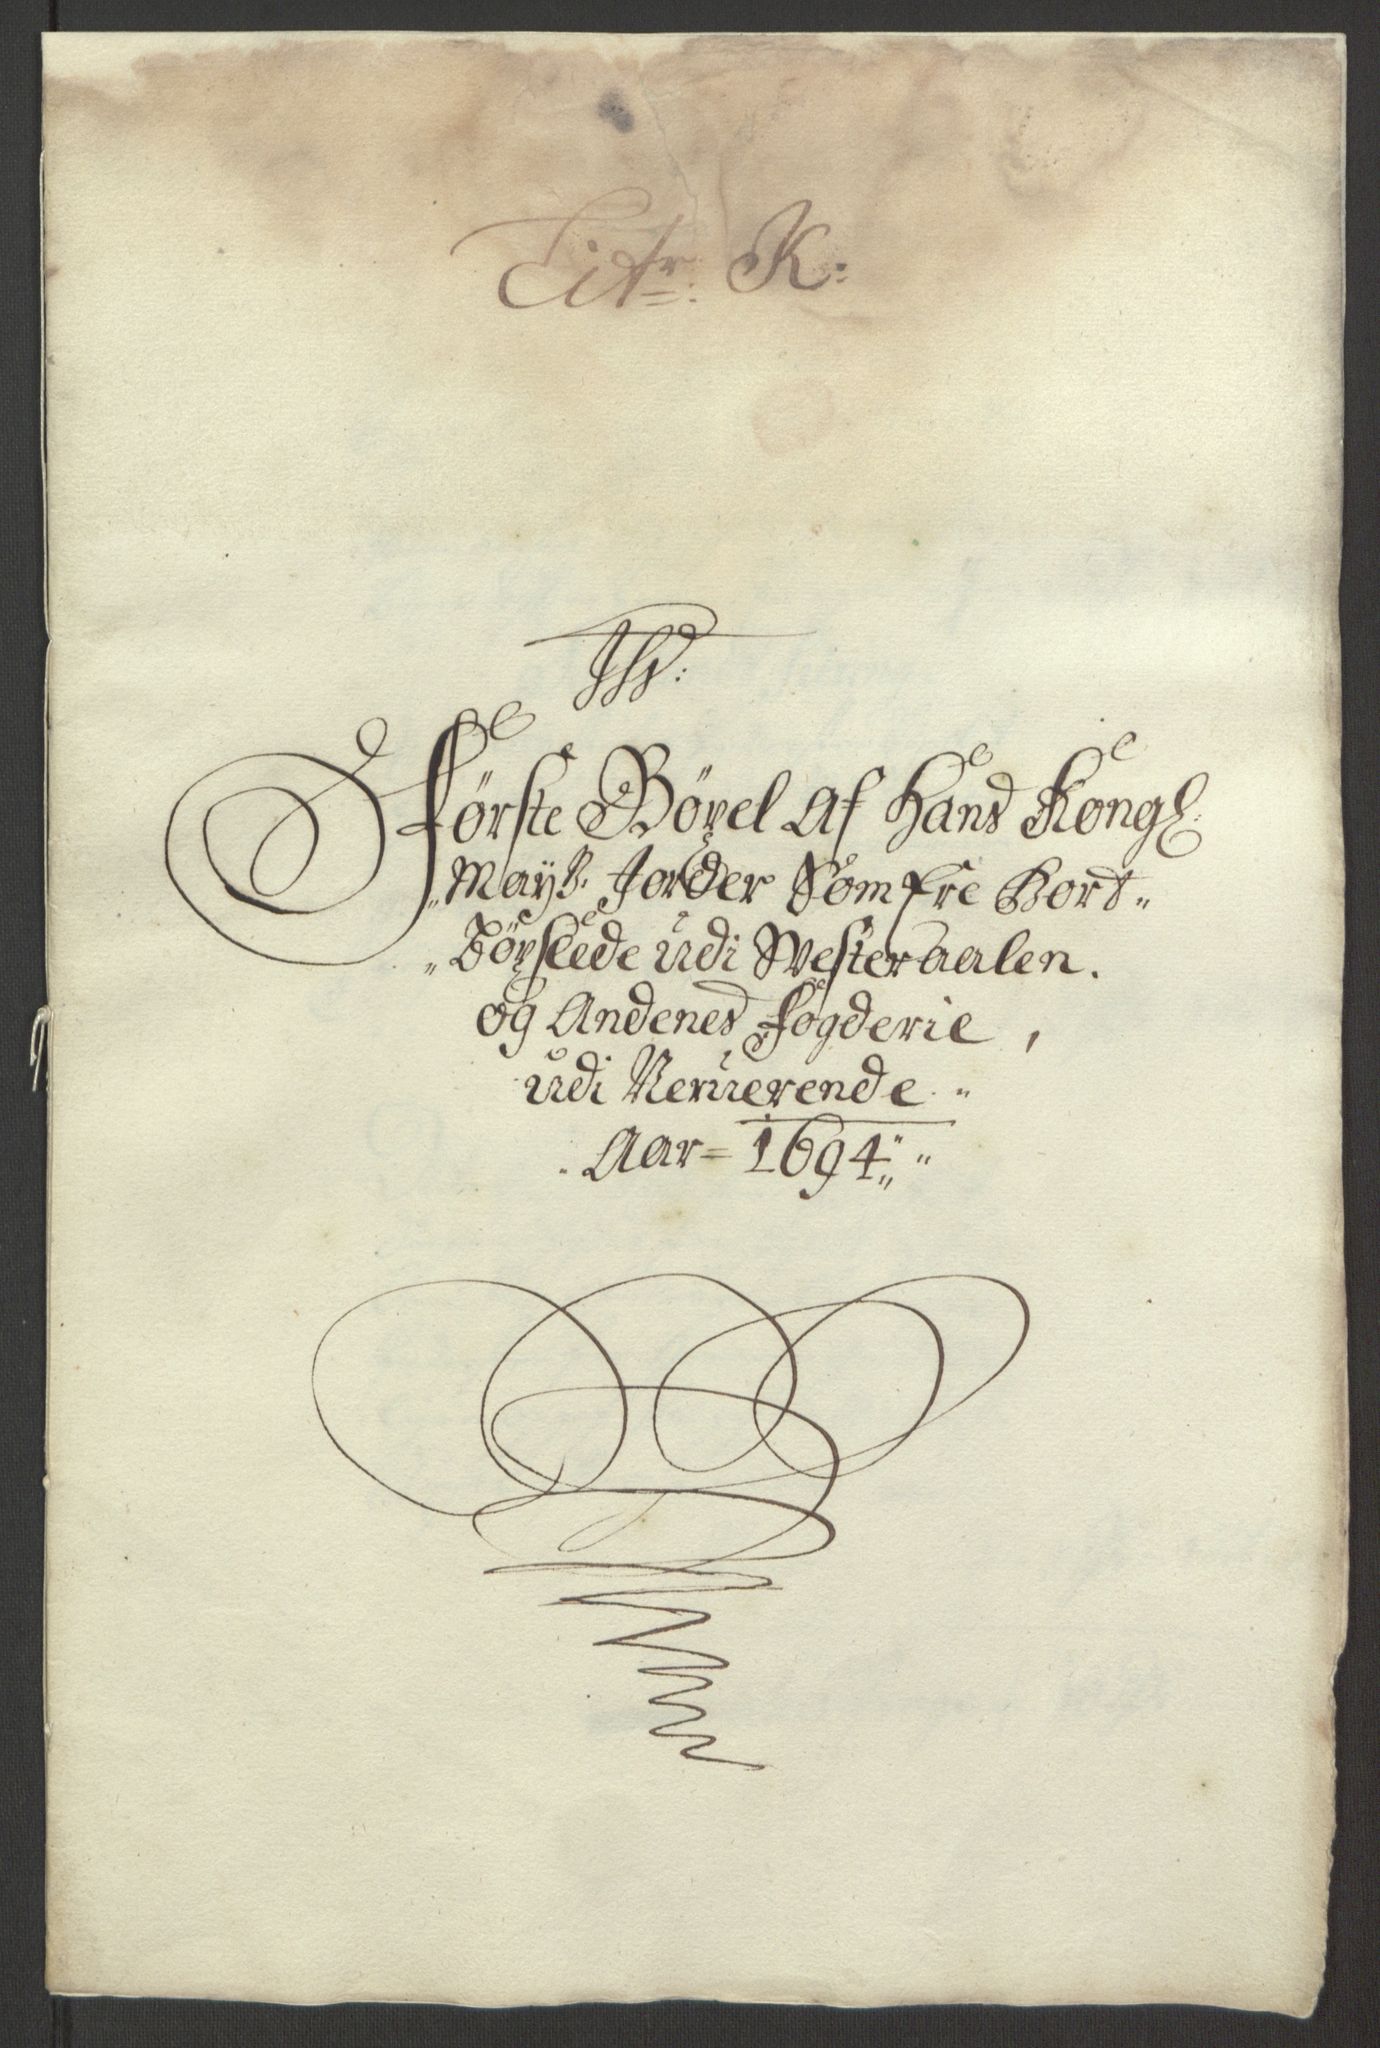 Litr. K:
Ihs:
Første Bøxel Af Hans Kongl:
Mayß. Jorder Som Ere Bort-
Bøxlede udi Westeraalen.
og Andenes Fogderie,
udi Neruerende
Aar = 1694